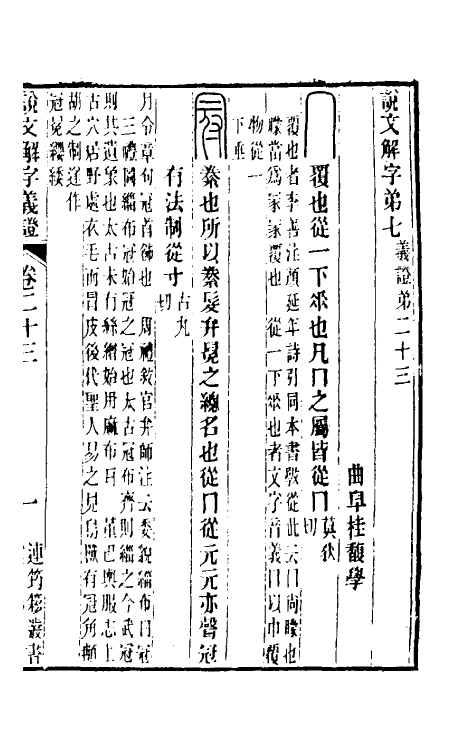 說文解字弟七 義證弟二十三
曲阜桂馥學
冂 覆也從一下𠂹也凡冂之屬皆從冂 莫狄切
覆也者李善注顏延年詩引同本書㲄從此云冂尚幪也
幪當爲冡冡覆也 從一下𠂹也者文字音義冂以巾覆
物從一
下垂
冠 絭也所以絭髮弁冕之總名也從冂從元元亦聲冠
有法制從寸 古丸切
月令章句冠首飾也 周禮敘官弁師注云委貌緇布曰冠
三禮圖緇布冠始冠之冠也太古冠布齊則緇之今武冠
則其遺象也太古未有絲繒始用麻布耳 董巴輿服志上
古穴居野處衣毛而冒皮後代聖人易之見鳥獸有冠角䫇
胡之制遂作
冠冕纓緌
說文解字義證 卷二十三 一 連筠簃叢書